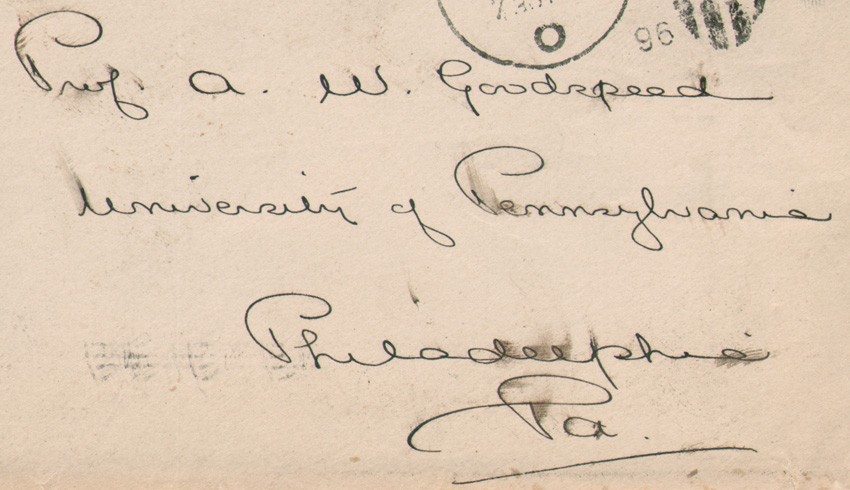 96
Prof. A. W. Goodspeed
University of Pennsylvania
Philadelphia
Pa.